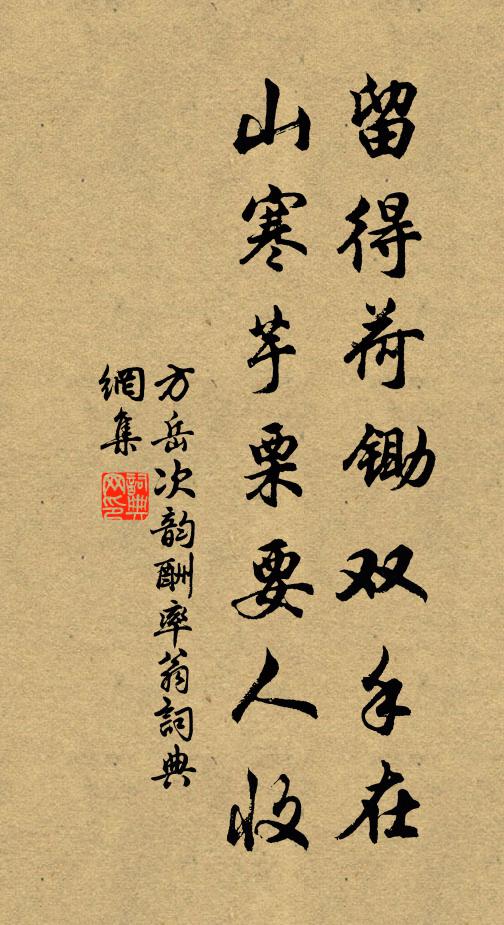 留得荷锄双手在
山寒芋栗要人收
方岳次韵酬率翁詞典
網集
詞典网印